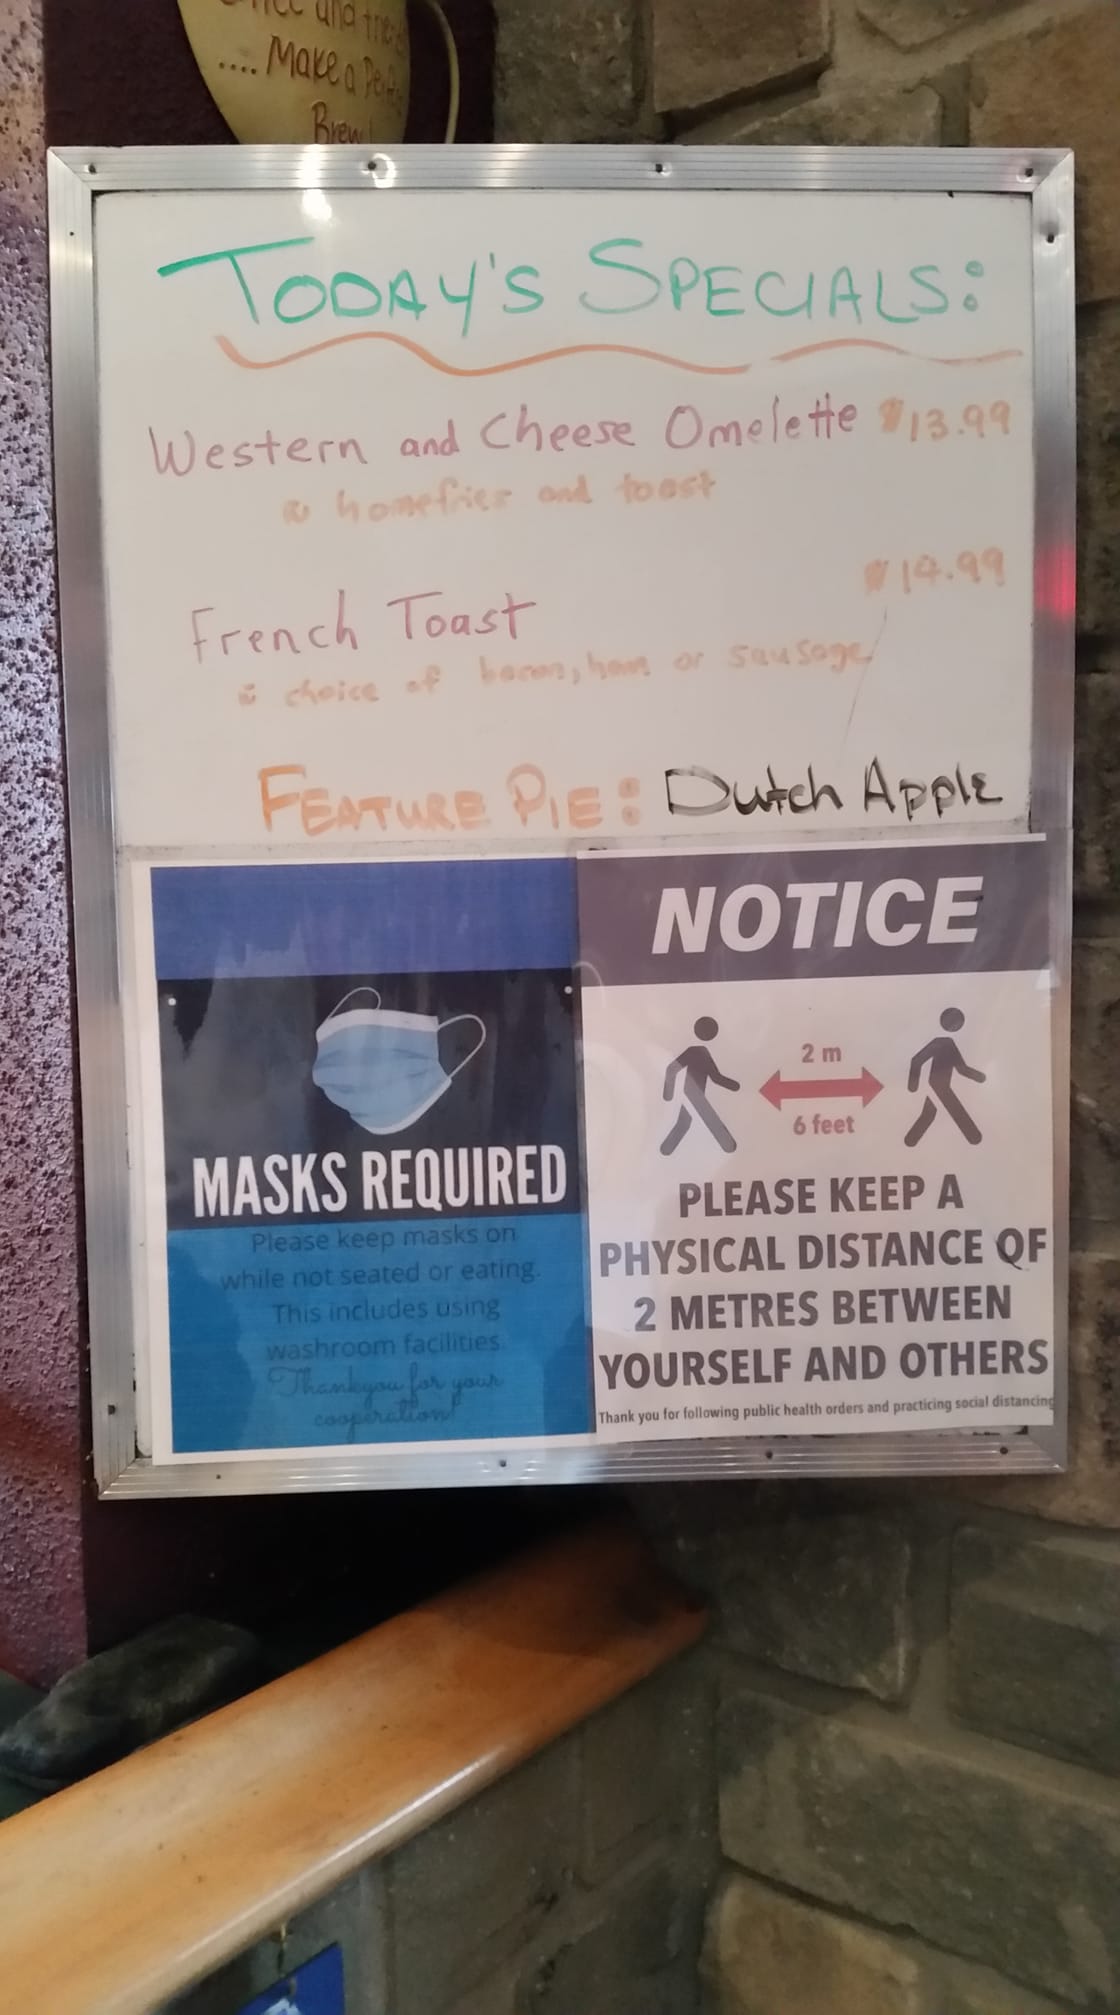 and the
.... Make a
Brew!
TODAY'S SPECIALS:
Western and Cheese Omelette $13.99
homefries and toast
$14.99
French Toast
choice of bacon, ham or sausage
FEATURE PIE: Dutch Apple
MASKS REQUIRED
Please keep masks on
while not seated or eating.
This includes using
washroom facilities.
Thankyou for your
cooperation!
NOTICE
2 m
6 feet
PLEASE KEEP A
PHYSICAL DISTANCE OF
2 METRES BETWEEN
YOURSELF AND OTHERS
Thank you for following public health orders and practicing social distancing